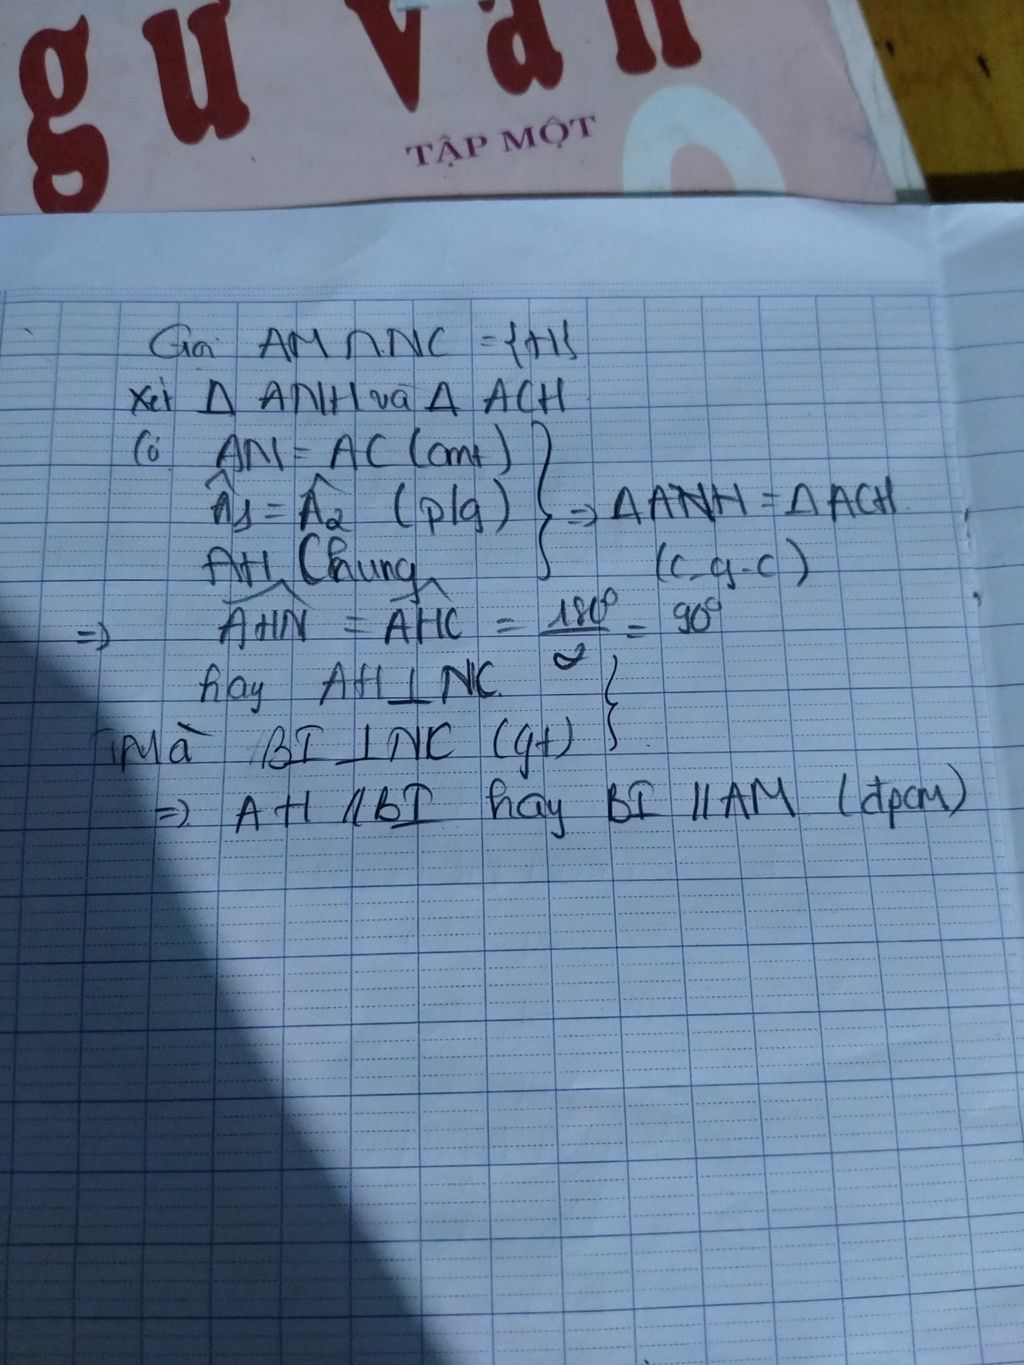 gữ văn
TẬP MỘT
Gọi AM ∩ NC = {H}
Xét Δ ANH và Δ ACH
Có AN = AC (cmt)
Â1 = Â2 (p/g) } => ΔANH = ΔACH
AH Chung (c-g-c)
=> AHN = AHC = 180°/2 = 90°
hay AH ⊥ NC
Mà BI ⊥ NC (gt) }
=> AH // BI hay BI // AM (đpcm)